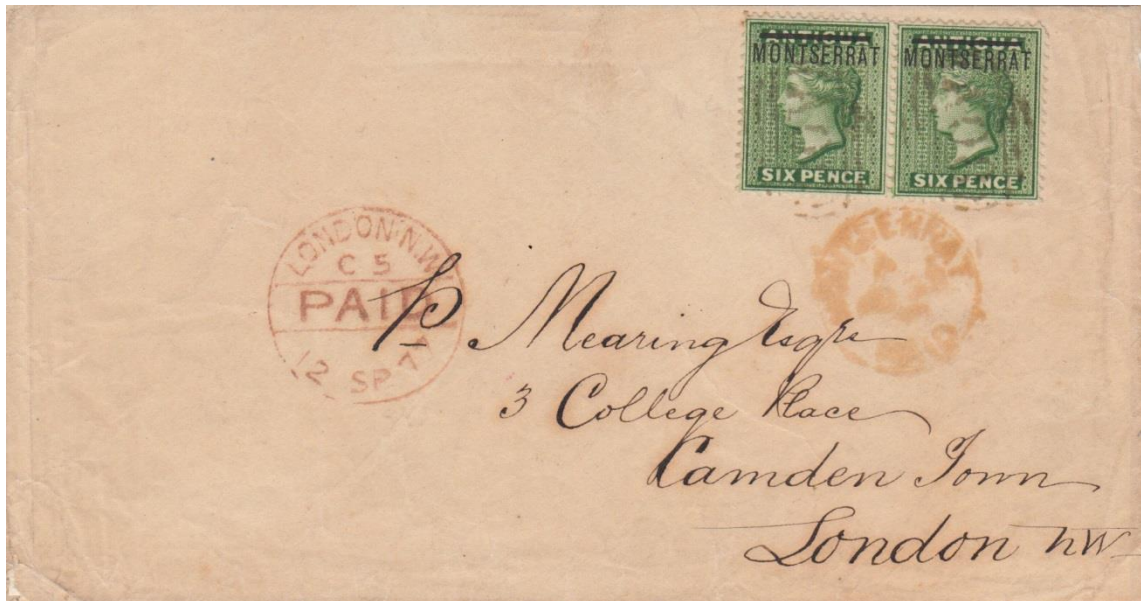 ANTIGUA
MONTSERRAT
SIX PENCE
ANTIGUA
MONTSERRAT
SIX PENCE
LONDON·N.W.
C 5
PAID
12 SP 77
MONTSERRAT
P Mearing Esqre
3 College Place
Camden Town
London NW